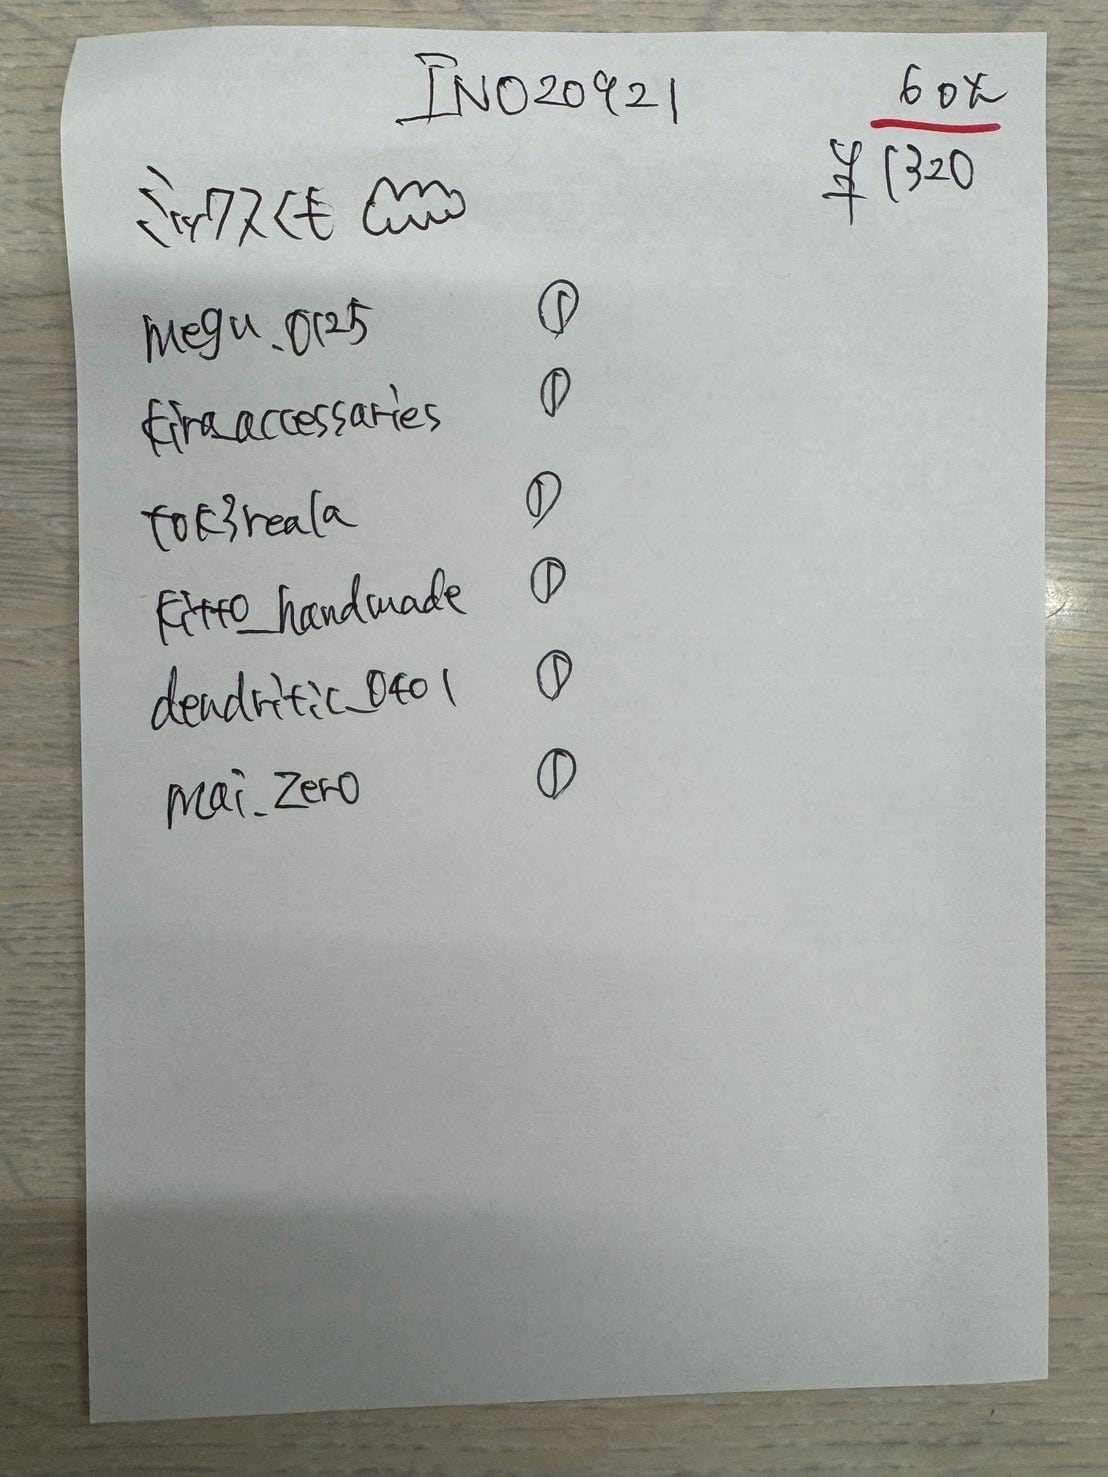 INO20921
60%
¥1320
ミックスくも
megu_0125 ①
kira_accessaries ①
tok3reala ①
kitto_handmade ①
dendritic_0401 ①
mai_zero ①